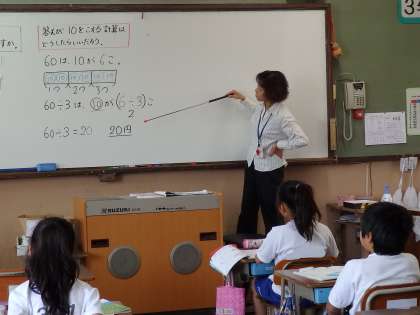 すか。
答えが 10をこえる計算は
どうしたらいいだろう。
60は、10が6こ。
10 10 10 10 10 10
1つ 2つ 3つ
60÷3は、10が(6÷3)こ
2
60÷3=20 2019
SUZUKI
3